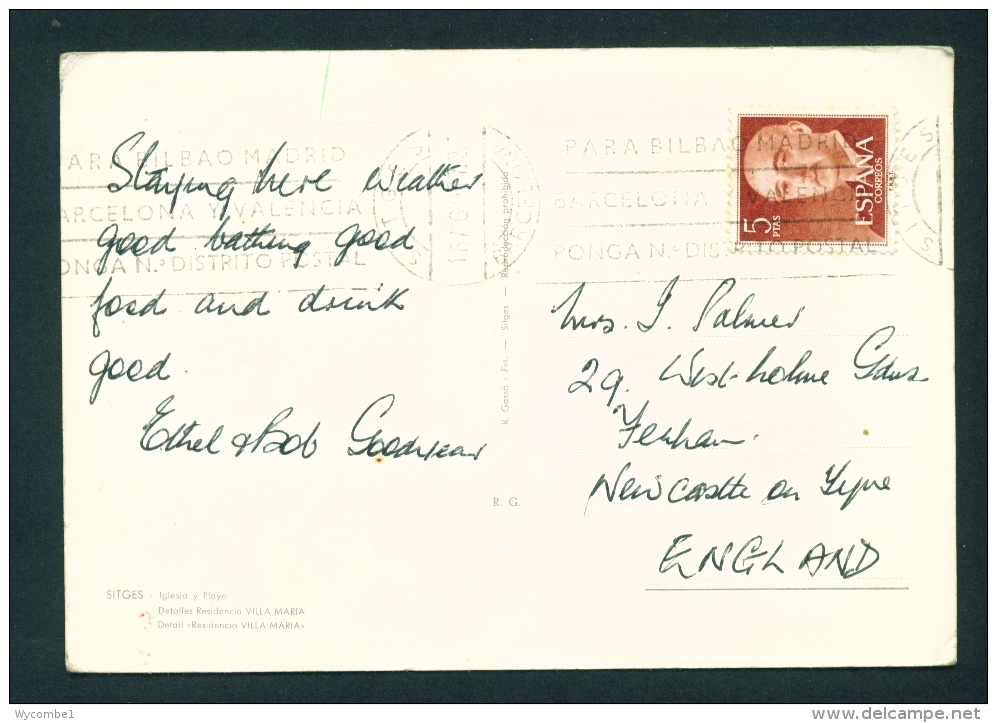 Staying here weather
good bathing good
food and drink
good.
Ethel & Bob Goodyear
PARA BILBAO MADRID
BARCELONA Y VALENCIA
PONGA N.º DISTRITO POSTAL
SITGES
PARA BILBAO MADRID
BARCELONA
VALENCIA
PONGA N.º DISTRITO POSTAL
5 PTAS
ESPAÑA
CORREOS
R. Gassó - Fot. — Sitges — Reproducción prohibida
R. G.
Mrs. J. Palmer
29. West-holme Gdns
Fenham.
Newcastle on Tyne
ENGLAND
SITGES - Iglesia y Playa
Detalles Residencia VILLA MARIA
Detail «Residencia VILLA MARIA»
Wycombe1